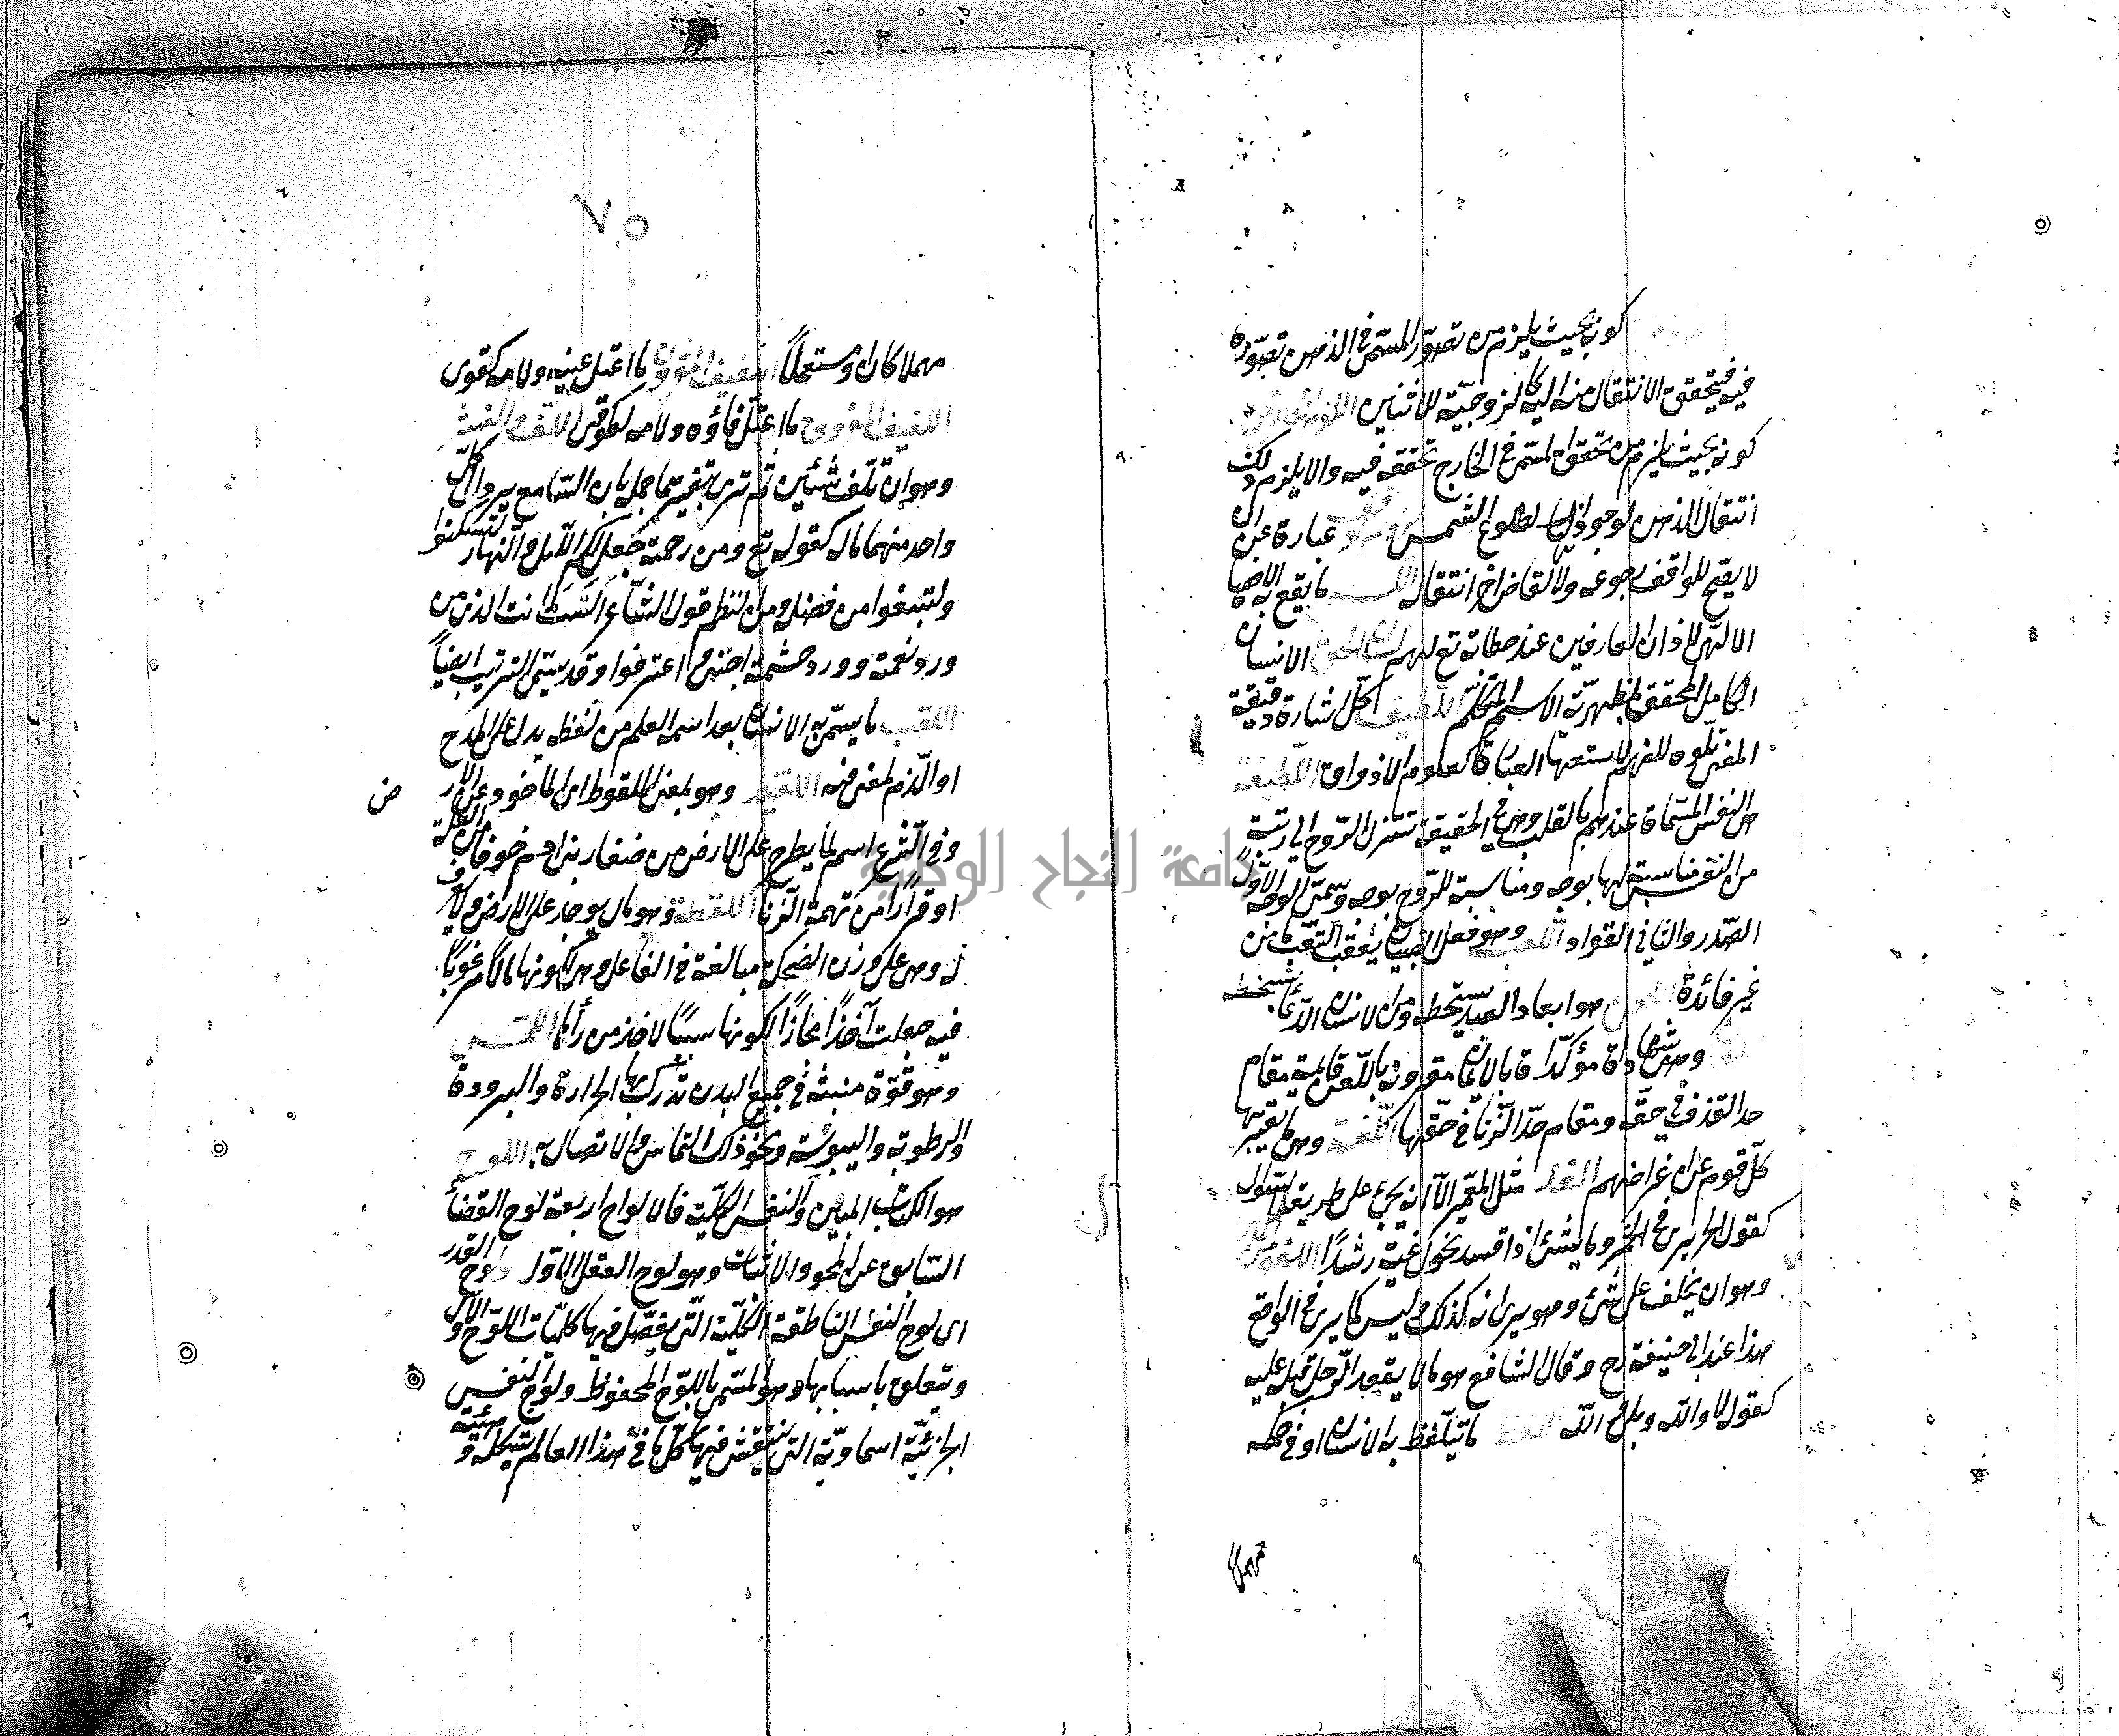 كونه بحيث يلزم من تصور المسمى في الذهن تصوره
فيه فيتحقق الانتقال منه اليه كالزوجية للاثنين اللازم الخارجي
كونه بحيث يلزم من تحقق المسمى في الخارج تحققه فيه ولا يلزم من ذلك
انتقال الذهن كوجود النهار لطلوع الشمس عبارة عن ان
لا يصح للواقف رجوعه ولا لقاض اخر ابطاله ما يقع به الافصاح
الالهي لاذان العارفين عند خطابه تع لهم لسان الحق الانسان
الكامل المتحقق بمظهرية الاسم المتكلم اللطيفة كل اشارة دقيقة
المعنى تلوح للفهم لا تسعها العبارة كعلوم الاذواق اللطيفة
هي النفس المسماة عندهم بالقلب وهي في الحقيقة تنزل الروح الى رتبة
من النفس مناسبة لها بوجه ومناسبة للروح بوجه وسمى الوجه الاول
الصدر والثاني الفؤاد اللعب وهو فعل الصبيان يعقب التعب من
غير فائدة اللعن هو ابعاد العبد بسخطه ومن الانسان الدعاء بسخطه
وهي شهادة مؤكدة بالايمان مقرونة باللعن قائمة مقام
حد القذف في حقه ومقام حد الزنا في حقها اللغة وهي ما يعبر بها
كل قوم عن اغراضهم اللغز مثل المعمى الا انه يجيء على طريقة السؤال
كقول الحريري في الخمر وما شيء اذا فسد تحول غيه رشدا اللغو من اليمين
وهو ان يحلف على شيء وهو يرى انه كذلك وليس كما يرى في الواقع
هذا عند ابي حنيفة رح وقال الشافعي هو ما لا يعقد الرجل قلبه عليه
كقوله لا والله وبلى والله اللفظ ما يتلفظ به الانسان او في حكمه
مهملا
٧٥
مهملا كان او مستعملا اللفيف المقرون ما اعتل عينه ولامه كقوى
اللفيف المفروق ما اعتل فاؤه ولامه كوقى اللف والنشر
وهو ان تلف شيئين ثم ترى بتفسيرهما جملة بان السامع يرد الى كل
واحد منهما ماله كقوله تع ومن رحمته جعل لكم الليل والنهار لتسكنوا
ولتبتغوا من فضله ومن النظم قول الشاعر الست انت الذي من
ورد نعمته وورد حشمته اجني واعترف وقد يسمى الترتيب ايضا
اللقب ما يسمى به الانسان بعد اسمه العلم من لفظ يدل على المدح
او الذم لمعنى فيه اللقيط وهو بمعنى الملقوط اي الماخوذ من الار
ض
وفي الشرع اسم لما يطرح على الارض من صغار بني ادم خوفا من العيلة
او فرارا من تهمة الزنا اللقطة وهو مال يوجد على الارض ولا يعرف
له وهي على وزن الضحكة مبالغة في الفاعل وهي لكونها مالا مرغوبا
فيه جعلت آخذا مجازا لكونها سببا لاخذ من رآها اللمس
وهو قوة منبثة في جميع البدن تدرك بها الحرارة والبرودة
والرطوبة واليبوسة ونحو ذلك التماس والاتصال به اللوح
هو الكتاب المبين والنفس الكلية فالالواح اربعة لوح القضاء
السابق على المحو والاثبات وهو لوح العقل الاول ولوح القدر
اي لوح النفس الناطقة الكلية التي يفصل فيها كليات اللوح الاول
ويتعلق باسبابها وهو المسمى باللوح المحفوظ ولوح النفس
الجزئية السماوية التي ينتقش فيها كل ما في هذا العالم بشكله وهيئته
جامعة النجاح الوطنية